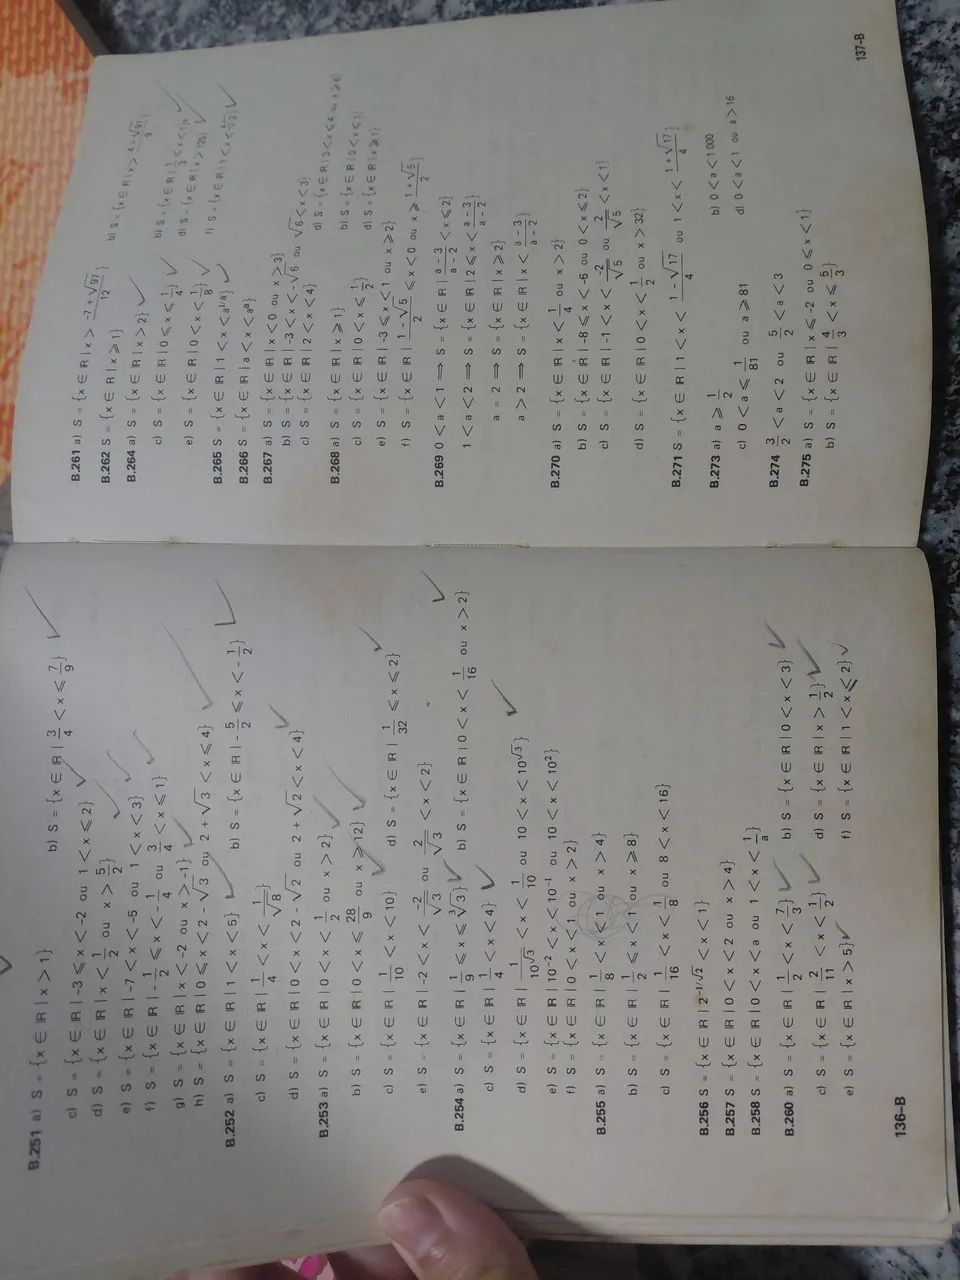 B.251 a) S = {x ∈ ℝ | x > 1}
b) S = {x ∈ ℝ | 3/4 < x ⩽ 7/9}
c) S = {x ∈ ℝ | -3 ⩽ x < -2 ou 1 < x ⩽ 2}
d) S = {x ∈ ℝ | x < 1/2 ou x > 5/2}
e) S = {x ∈ ℝ | -7 < x < -5 ou 1 < x < 3}
f) S = {x ∈ ℝ | -1/2 ⩽ x < -1/4 ou 3/4 < x ⩽ 1}
g) S = {x ∈ ℝ | x < -2 ou x > -1}
h) S = {x ∈ ℝ | 0 ⩽ x < 2 - √3 ou 2 + √3 < x ⩽ 4}
B.252 a) S = {x ∈ ℝ | 1 < x < 5}
b) S = {x ∈ ℝ | -5/2 ⩽ x < -1/2}
c) S = {x ∈ ℝ | 1/4 < x < 1/√8}
d) S = {x ∈ ℝ | 0 < x < 2 - √2 ou 2 + √2 < x < 4}
B.253 a) S = {x ∈ ℝ | 0 < x < 1/2 ou x > 2}
b) S = {x ∈ ℝ | 0 < x ⩽ 28/9 ou x ⩾ 12}
c) S = {x ∈ ℝ | 1/10 < x < 10}
d) S = {x ∈ ℝ | 1/32 ⩽ x ⩽ 2}
e) S = {x ∈ ℝ | -2 < x < -2/√3 ou 2/√3 < x < 2}
B.254 a) S = {x ∈ ℝ | 1/9 ⩽ x ⩽ ∛3}
b) S = {x ∈ ℝ | 0 < x < 1/16 ou x > 2}
c) S = {x ∈ ℝ | 1/4 < x < 4}
d) S = {x ∈ ℝ | 1/10^√3 < x < 1/10 ou 10 < x < 10^√3}
e) S = {x ∈ ℝ | 10⁻² < x < 10⁻¹ ou 10 < x < 10²}
f) S = {x ∈ ℝ | 0 < x < 1 ou x > 2}
B.255 a) S = {x ∈ ℝ | 1/8 < x < 1 ou x > 4}
b) S = {x ∈ ℝ | 1/2 ⩽ x < 1 ou x ⩾ 8}
c) S = {x ∈ ℝ | 1/16 < x < 1/8 ou 8 < x < 16}
B.256 S = {x ∈ ℝ | 2^-1/√2 < x < 1}
B.257 S = {x ∈ ℝ | 0 < x < 2 ou x > 4}
B.258 S = {x ∈ ℝ | 0 < x < a ou 1 < x < 1/a}
B.260 a) S = {x ∈ ℝ | 1/2 < x < 7/3}
b) S = {x ∈ ℝ | 0 < x < 3}
c) S = {x ∈ ℝ | 2/11 < x < 1/2}
d) S = {x ∈ ℝ | x > 1/2}
e) S = {x ∈ ℝ | x > 5}
f) S = {x ∈ ℝ | 1 < x ⩽ 2}
136-B
B.261 a) S = {x ∈ ℝ | x > (-7 + √97)/12}
b) S = {x ∈ ℝ | x >
B.262 S = {x ∈ ℝ | x ⩾ 1}
B.264 a) S = {x ∈ ℝ | x > 2}
b) S = {x ∈ ℝ | 1/3 < x < 1}
c) S = {x ∈ ℝ | 0 ⩽ x ⩽ 1/4}
d) S = {x ∈ ℝ | x > 125}
e) S = {x ∈ ℝ | 0 < x < 1/8}
B.265 S = {x ∈ ℝ | 1 < x <
B.266 S = {x ∈ ℝ | a < x < aᵃ}
B.267 a) S = {x ∈ ℝ | x < 0 ou x > 3}
b) S = {x ∈ ℝ | -3 < x < -√6 ou √6 < x < 3}
c) S = {x ∈ ℝ | 2 < x < 4}
B.268 a) S = {x ∈ ℝ | x ⩾ 1}
b) S = {x ∈ ℝ | 0 < x < 1}
c) S = {x ∈ ℝ | 0 < x ⩽ 1/2}
d) S = {x ∈ ℝ | x ⩾ 1}
e) S = {x ∈ ℝ | -3 ⩽ x < 1 ou x ⩾ 2}
f) S = {x ∈ ℝ | (1 - √5)/2 ⩽ x < 0 ou x ⩾ (1 + √5)/2}
B.269 0 < a < 1 ⟹ S = {x ∈ ℝ | (a - 3)/(a - 2) < x ⩽ 2}
1 < a < 2 ⟹ S = {x ∈ ℝ | 2 ⩽ x < (a - 3)/(a - 2)}
a = 2 ⟹ S = {x ∈ ℝ | x ⩾ 2}
a > 2 ⟹ S = {x ∈ ℝ | x < (a - 3)/(a - 2)}
B.270 a) S = {x ∈ ℝ | x < 1/4 ou x > 2}
b) S = {x ∈ ℝ | -8 ⩽ x < -6 ou 0 < x ⩽ 2}
c) S = {x ∈ ℝ | -1 < x < -2/√5 ou 2/√5 < x < 1}
d) S = {x ∈ ℝ | 0 < x < 1/2 ou x > 32}
B.271 S = {x ∈ ℝ | 1 < x < (1 - √17)/4 ou 1 < x < (1 + √17)/4}
B.273 a) a ⩾ 1/2
b) 0 < a < 1 000
c) 0 < a ⩽ 1/81 ou a ⩾ 81
d) 0 < a < 1 ou a > 16
B.274 3/2 < a < 2 ou 5/2 < a < 3
B.275 a) S = {x ∈ ℝ | x ⩽ -2 ou 0 ⩽ x < 1}
b) S = {x ∈ ℝ | 4/3 < x ⩽ 5/3}
137-B